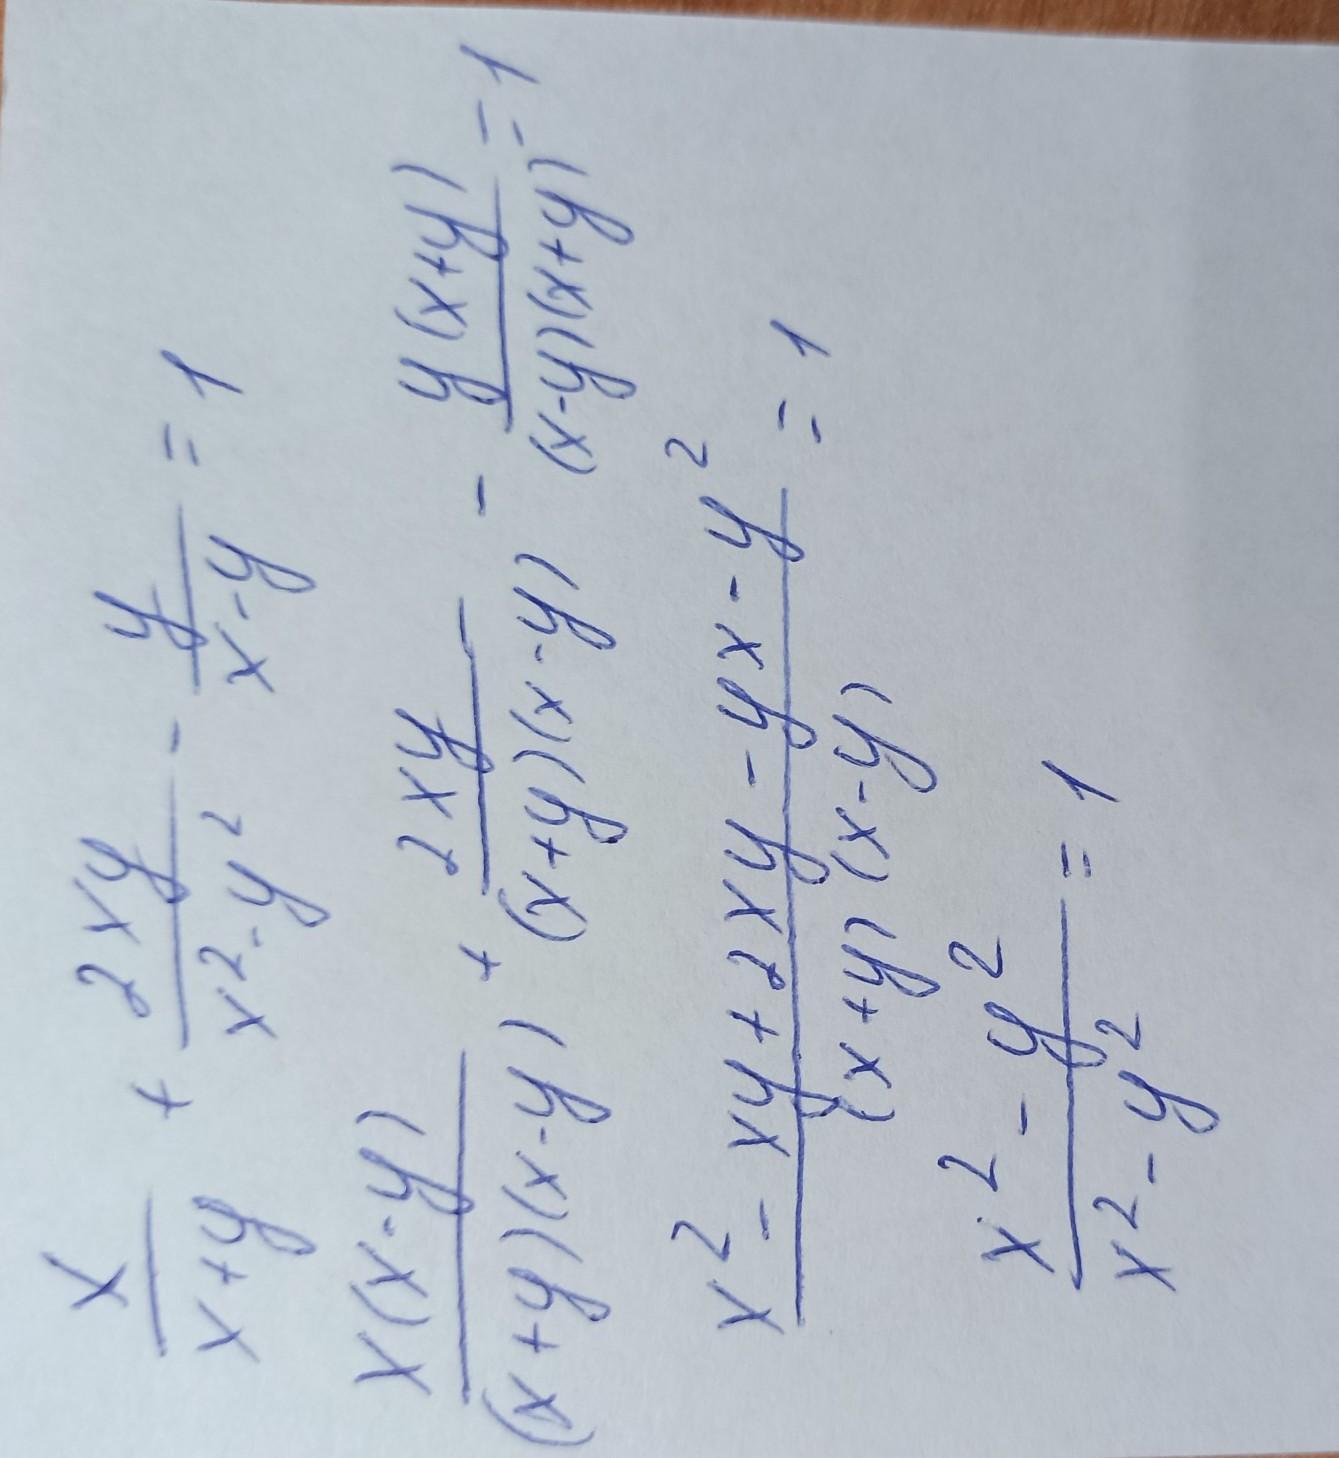 x/(x+y) + 2xy/(x²-y²) - y/(x-y) = 1
x(x-y)/((x+y)(x-y)) + 2xy/((x+y)(x-y)) - y(x+y)/((x-y)(x+y)) = 1
(x² - xy + 2xy - yx - y²)/((x+y)(x-y)) = 1
(x² - y²)/(x² - y²) = 1